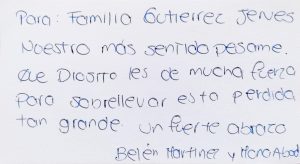 Para: Familia Gutierrez Jerves
Nuestro más sentido pesame.
Que Diosito les de mucha fuerza
para sobrellevar esta perdida
tan grande. Un fuerte abrazo
Belén Martinez y Mario Abad